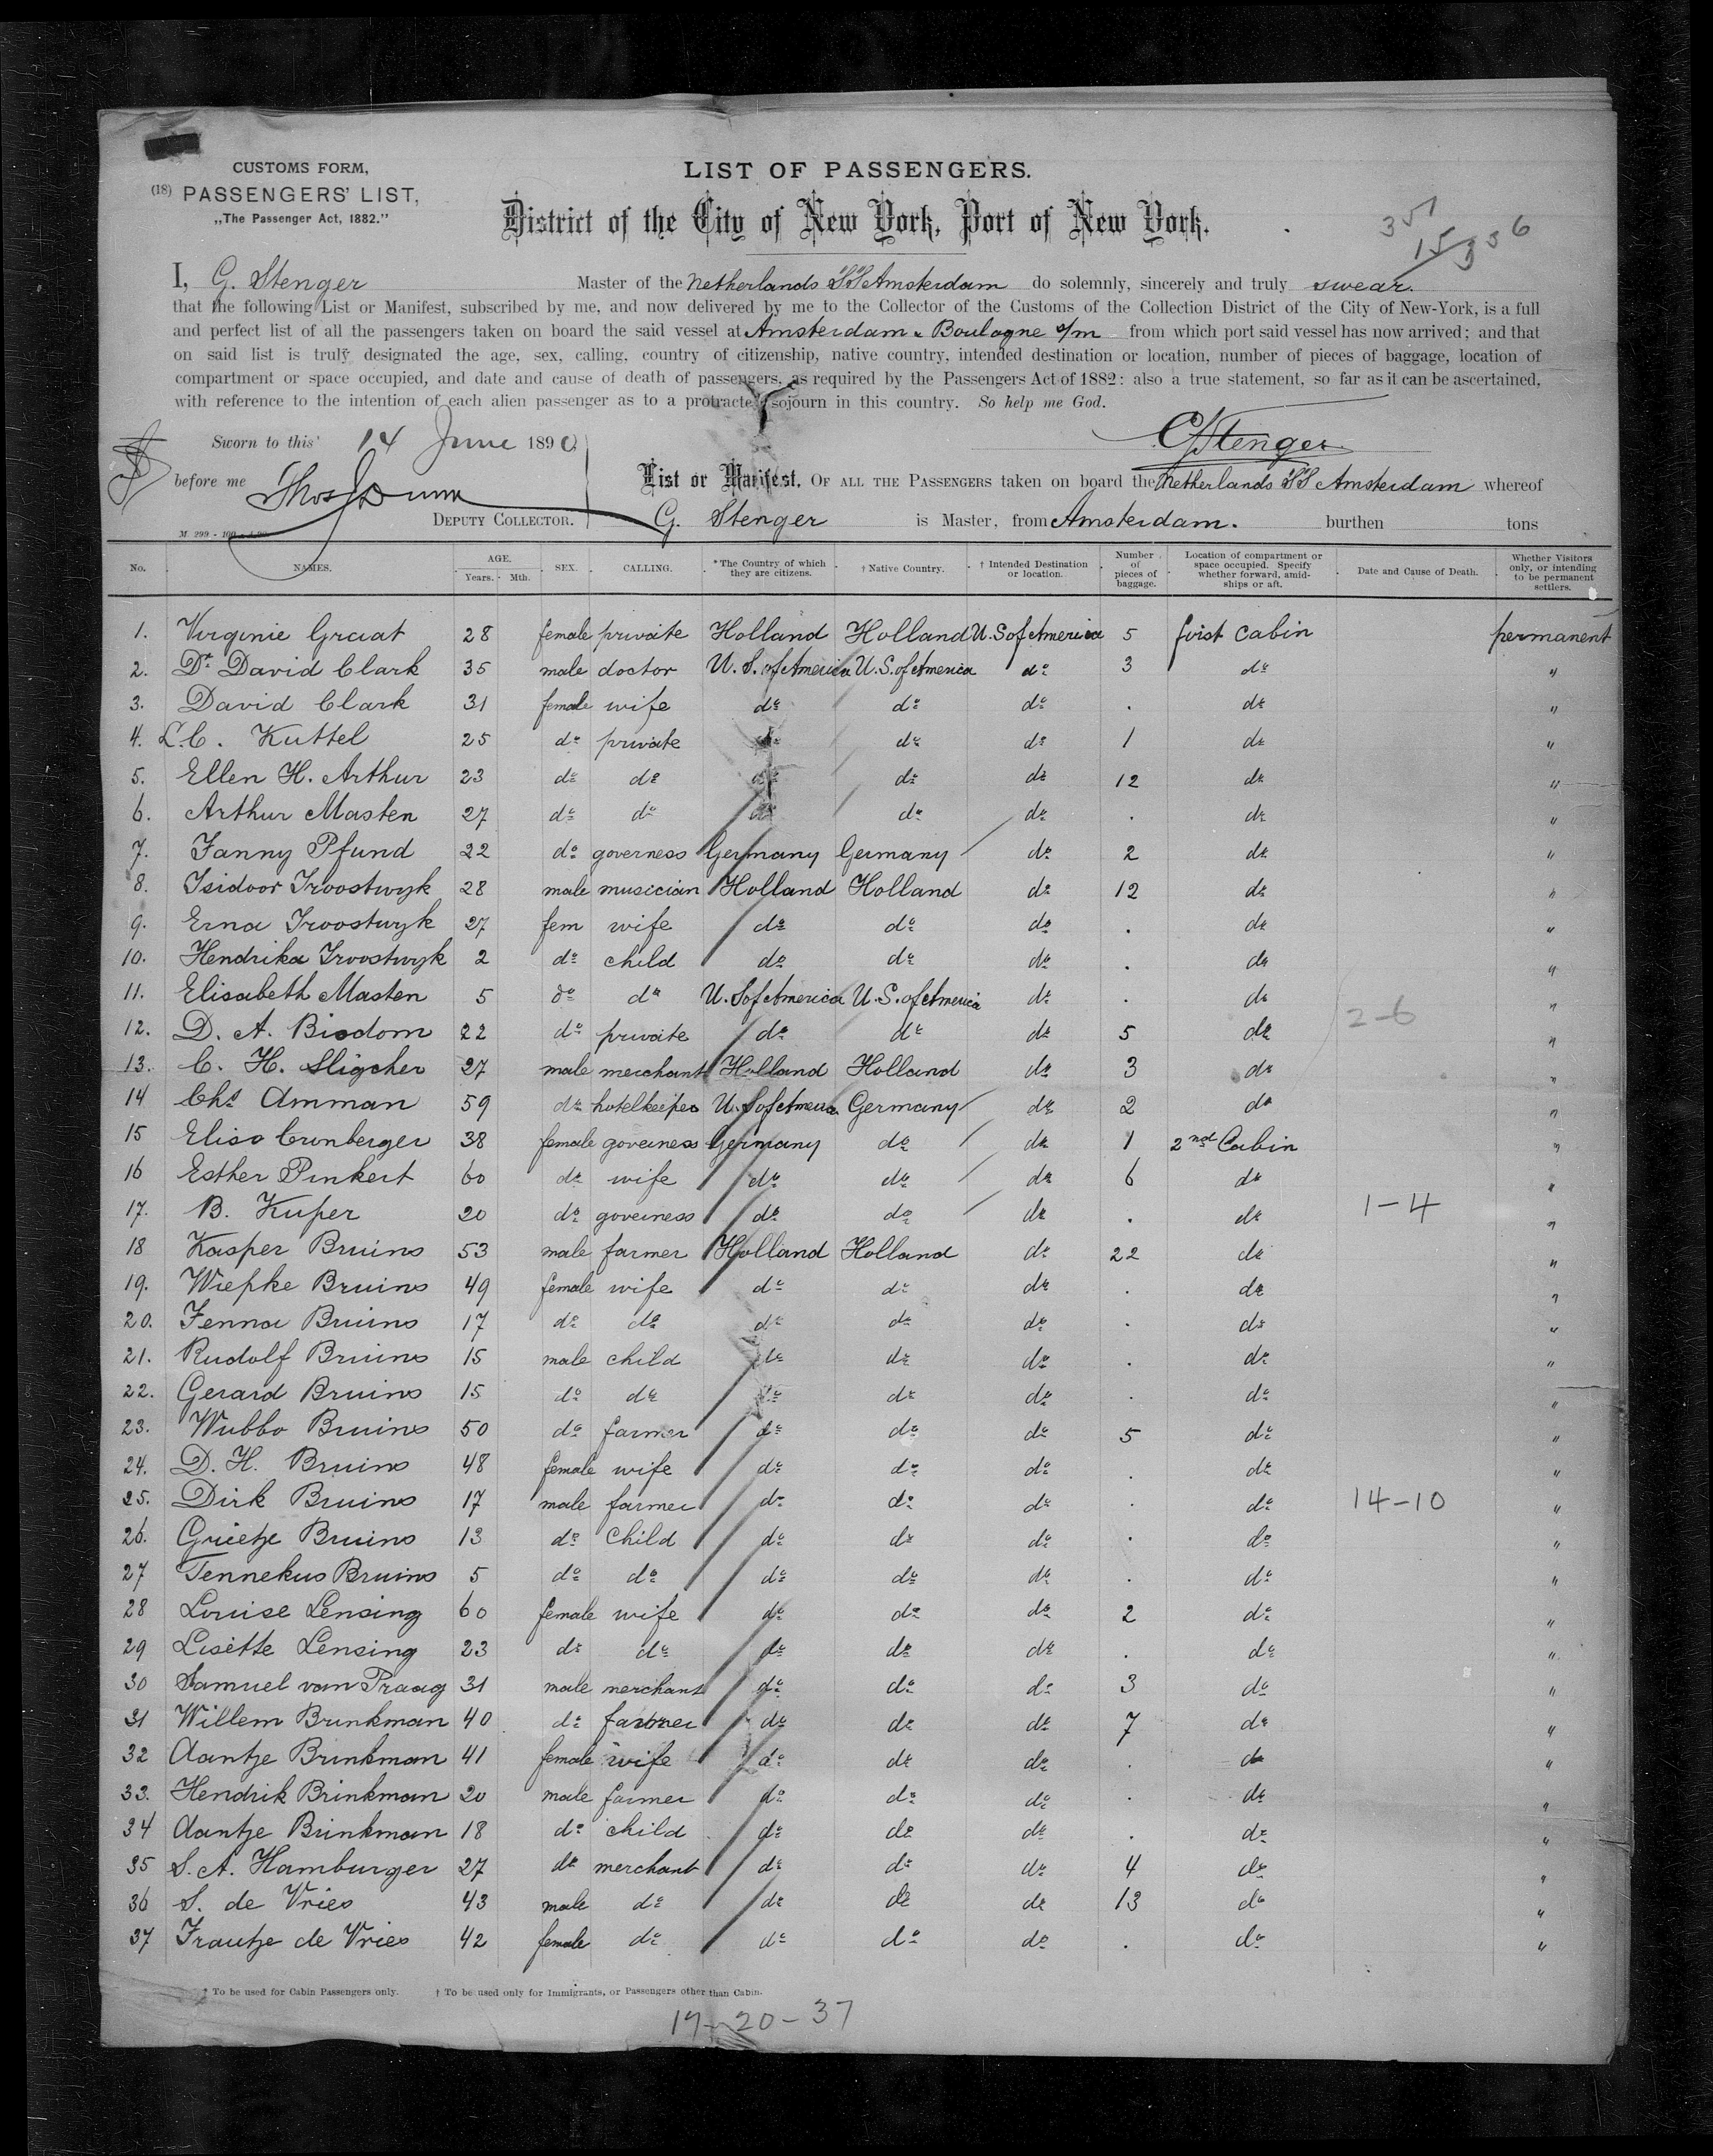 CUSTOMS FORM,
(18) PASSENGERS' LIST,
„The Passenger Act, 1882."
LIST OF PASSENGERS.
District of the City of New York, Port of New York.
351
15
356
I, G. Stenger Master of the Netherlands SS Amsterdam do solemnly, sincerely and truly swear.
that the following List or Manifest, subscribed by me, and now delivered by me to the Collector of the Customs of the Collection District of the City of New-York, is a full
and perfect list of all the passengers taken on board the said vessel at Amsterdam & Boulogne s/m from which port said vessel has now arrived; and that
on said list is truly designated the age, sex, calling, country of citizenship, native country, intended destination or location, number of pieces of baggage, location of
compartment or space occupied, and date and cause of death of passengers, as required by the Passengers Act of 1882: also a true statement, so far as it can be ascertained,
with reference to the intention of each alien passenger as to a protracted sojourn in this country. So help me God.
Sworn to this 14 June 1890
GStenger
before me Thos J Dunn
DEPUTY COLLECTOR.
List or Manifest, OF ALL THE PASSENGERS taken on board the Netherlands SS Amsterdam whereof
G. Stenger is Master, from Amsterdam. burthen tons
M. 299 - 100
No. NAMES. AGE. Years. Mth. SEX. CALLING. *The Country of which they are citizens. † Native Country. † Intended Destination or location. Number of pieces of baggage. Location of compartment or space occupied. Specify whether forward, amidships or aft. Date and Cause of Death. Whether Visitors only, or intending to be permanent settlers.
1. Virginie Graat 28 female private Holland Holland U.S of America 5 first cabin permanent
2. Dr. David Clark 35 male doctor U.S. of America U.S. of America do 3 do "
3. David Clark 31 female wife do do do . do "
4. L.C. Kuttel 25 do private do do do 1 do "
5. Ellen H. Arthur 23 do do do do do 12 do "
6. Arthur Masten 27 do do do do do . do "
7. Fanny Pfund 22 do governess Germany Germany do 2 do "
8. Isidoor Troostwyk 28 male musician Holland Holland do 12 do "
9. Erna Troostwyk 27 fem wife do do do . do "
10. Hendrika Troostwyk 2 do child do do do . do "
11. Elisabeth Masten 5 do do U.S of America U.S. of America do . do "
2-6
12. D. A. Biodom 22 do private do do do 5 do "
13. C. H. Sligcher 27 male merchant Holland Holland do 3 do "
14 Chs Amman 59 do hotelkeeper U.S of America Germany do 2 do "
15 Elisa Cronberger 38 female governess Germany do do 1 2nd Cabin "
16 Esther Pinkert 60 do wife do do do 6 do "
17. B. Kuper 20 do governess do do do . do 1-4 "
18 Kasper Bruins 53 male farmer Holland Holland do 22 do "
19. Wiepke Bruins 49 female wife do do do . do "
20. Fenna Bruins 17 do do do do do . do "
21. Rudolf Bruins 15 male child do do do . do "
22. Gerard Bruins 15 do do do do do . do "
23. Wubbo Bruins 50 do farmer do do do 5 do "
24. D. H. Bruins 48 female wife do do do . do "
25. Dirk Bruins 17 male farmer do do do . do 14-10 "
26. Grietje Bruins 13 do Child do do do . do "
27 Tennekus Bruins 5 do do do do do . do "
28 Louise Lensing 60 female wife do do do 2 do "
29 Lisette Lensing 23 do do do do do . do "
30 Samuel van Praag 31 male merchant do do do 3 do "
31 Willem Brinkman 40 do farmer do do do 7 do "
32 Aantje Brinkman 41 female wife do do do . do "
33. Hendrik Brinkman 20 male farmer do do do . do "
34 Aantje Brinkman 18 do child do do do . do "
35 S. A. Hamburger 27 do merchant do do do 4 do "
36 S. de Vries 43 male do do do do 13 do "
37 Frautje de Vries 42 female do do do do . do "
† To be used for Cabin Passengers only. † To be used only for Immigrants, or Passengers other than Cabin.
17-20-37